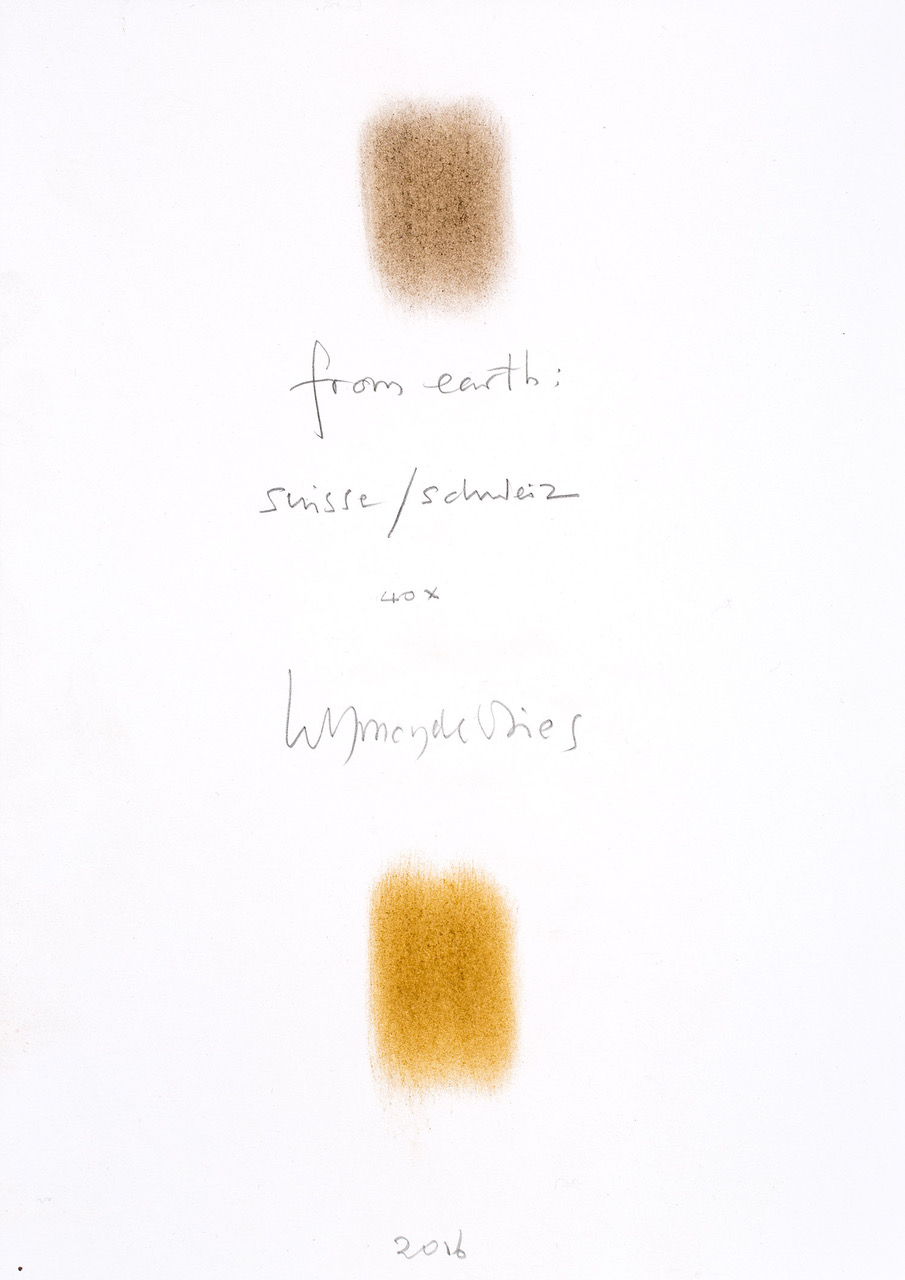 from earth:
suisse/schweiz
40x
herman de vries
2016